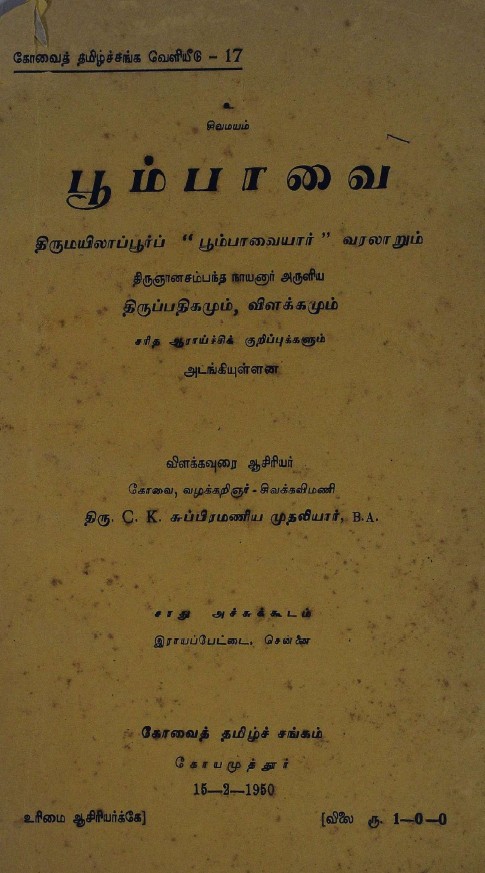 கோவைத் தமிழ்ச்சங்க வேளியீடு - 17
உ
சிவமயம்
பூம்பாவை
திருமயிலாப்பூர்ப் “பூம்பாவையார்” வரலாறும்
திருஞானசம்பந்த நாயனார் அருளிய
திருப்பதிகமும், விளக்கமும்
சரித ஆராய்ச்சிக் குறிப்புக்களும்
அடங்கியுள்ளன
விளக்கவுரை ஆசிரியர்
கோவை, வழக்கறிஞர் - சிவக்கவிமணி
திரு. C. K. சுப்பிரமணிய முதலியார், B.A.
சாது அச்சுக்கூடம்
இராயப்பேட்டை, சென்னை
கோவைத் தமிழ்ச் சங்கம்
கோயமுத்தூர்
15—2—1950
உரிமை ஆசிரியர்க்கே] [விலை ரூ. 1—0—0